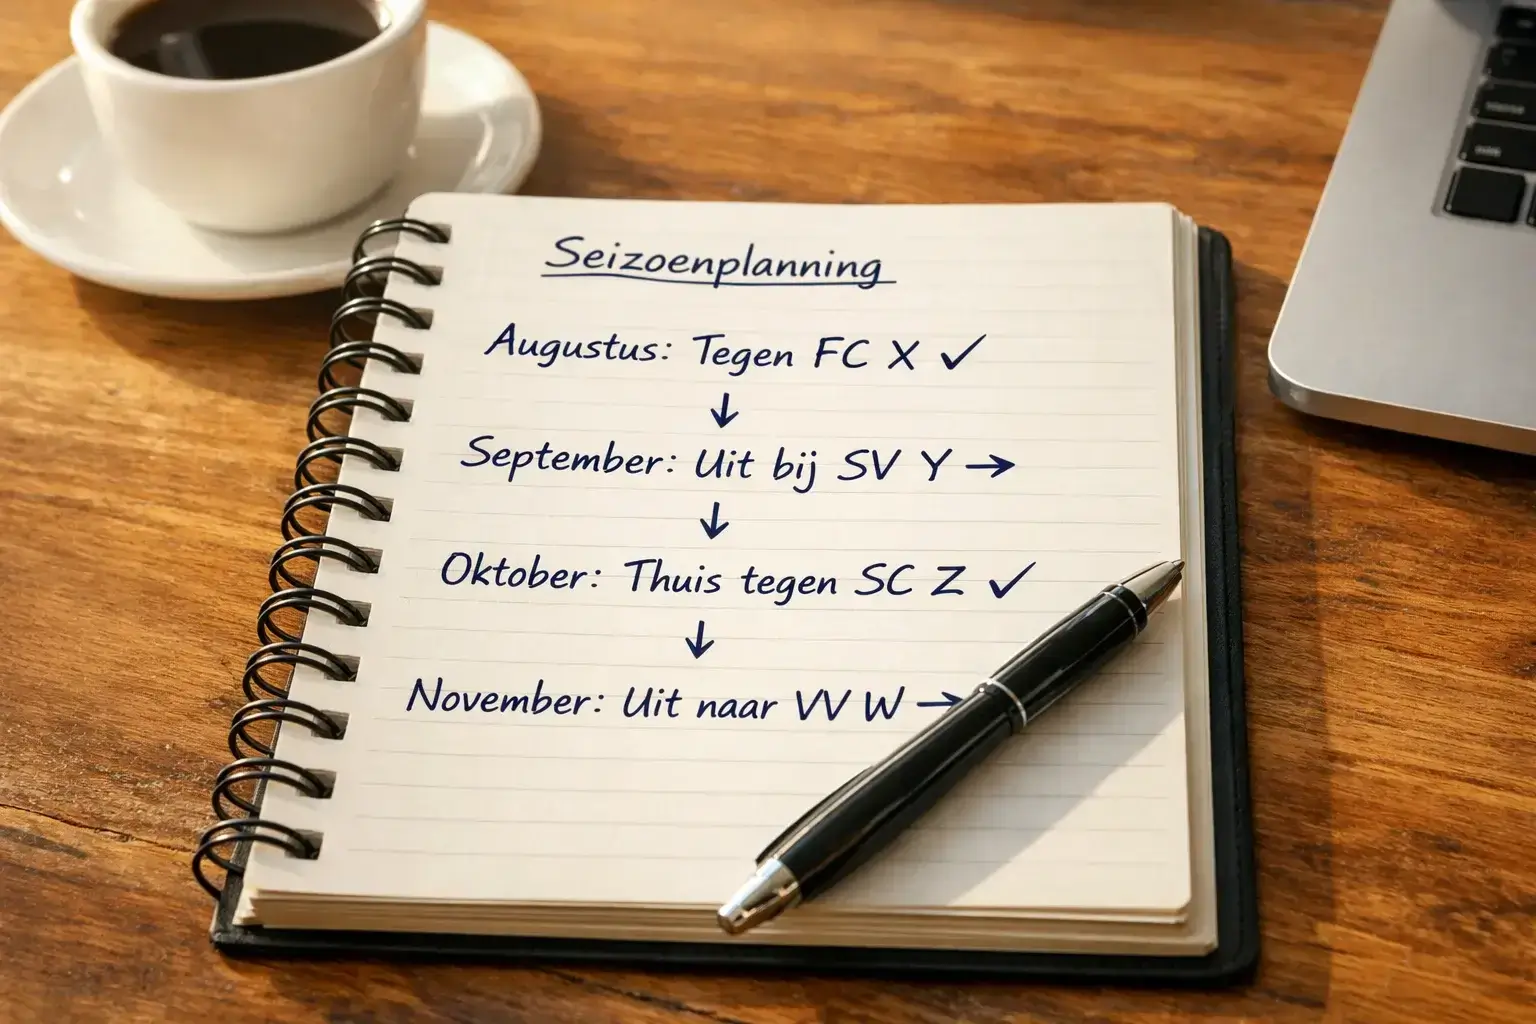 Seizoenplanning
Augustus: Tegen FC X ✓
↓
September: Uit bij SV Y →
↓
Oktober: Thuis tegen SC Z ✓
↓
November: Uit naar VV W →